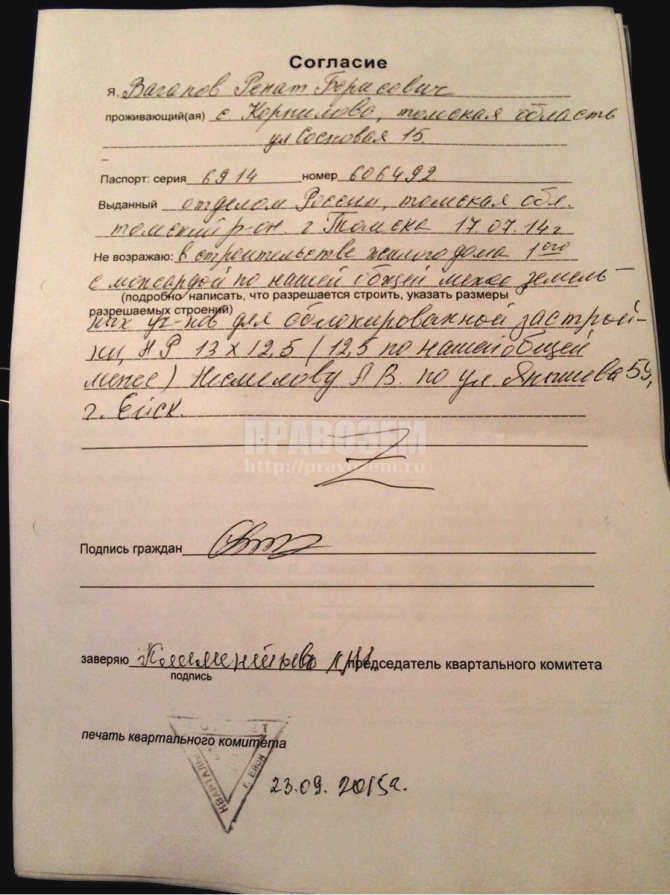 Согласие
Я, Вагапов Ренат Борисович
проживающий(ая) с Корнилово, томская область
ул Сосновая 15.
Паспорт: серия 6914 номер 606492
Выданный отделом России, томская обл.
томский р-он. г Томска 17.07.14г
Не возражаю: в строительстве жилого дома 1ого
с мансардой по нашей общей меже земель-
(подробно написать, что разрешается строить, указать размеры
разрешаемых строений)
ных уч-ков для облокированной застрой-
ки, 13 х 12,5 (12,5 по нашей общей
меже) Несмелову А В. по ул 59,
г. Ейск.
ПРАВОЗЕМ
Подпись граждан
заверяю председатель квартального комитета
подпись
печать квартального комитета
КВАРТАЛЬН
г. Ейск
23.09. 2015г.